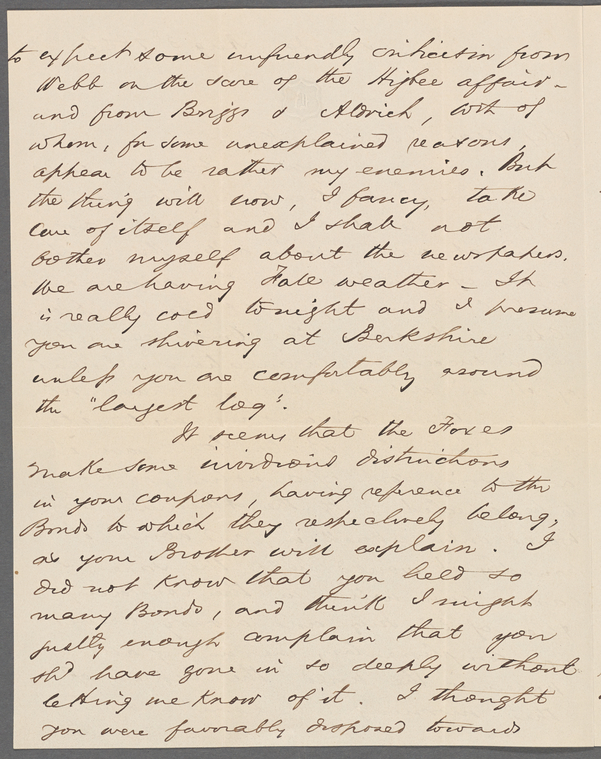 to expect some unfriendly criticism from
Webb on the score of the Higbee affair –
and from Briggs & Aldrich, both of
whom, for some unexplained reasons,
appear to be rather my enemies. But
the thing will now, I fancy, take
care of itself and I shall not
bother myself about the newspapers.
We are having Fall weather – It
is really cold tonight and I presume
you are shivering at Berkshire
unless you are comfortably around
the "largest log".
It seems that the Foxes
make some invidious distinctions
in your coupons, having reference to the
Bonds to which they respectively belong,
as your Brother will explain. I
did not know that you held so
many Bonds, and think I might
justly enough complain that you
shd have gone in so deeply without
letting me know of it. I thought
you were favorably disposed towards